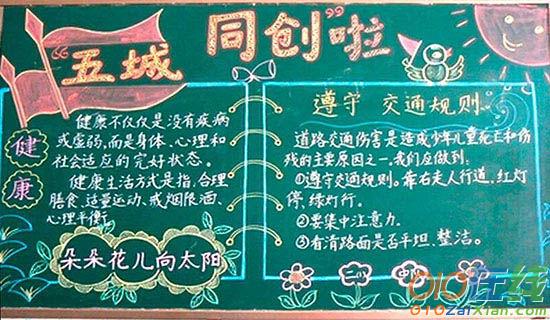 “五城 同创”啦
健康
健康不仅仅是没有疾病
或虚弱,而是身体、心理和
社会适应的完好状态。
健康生活方式是指,合理
膳食、适量运动、戒烟限酒、
心理平衡。
朵朵花儿向太阳
遵守 交通规则。
道路交通伤害是造成少年儿童死亡和伤
残的主要原因之一,我们应做到:
①遵守交通规则。靠右走人行道,红灯
停,绿灯行。
②要集中注意力。
③看清路面是否平坦、整洁。
二(1)中队
010在线
010zaixian.com